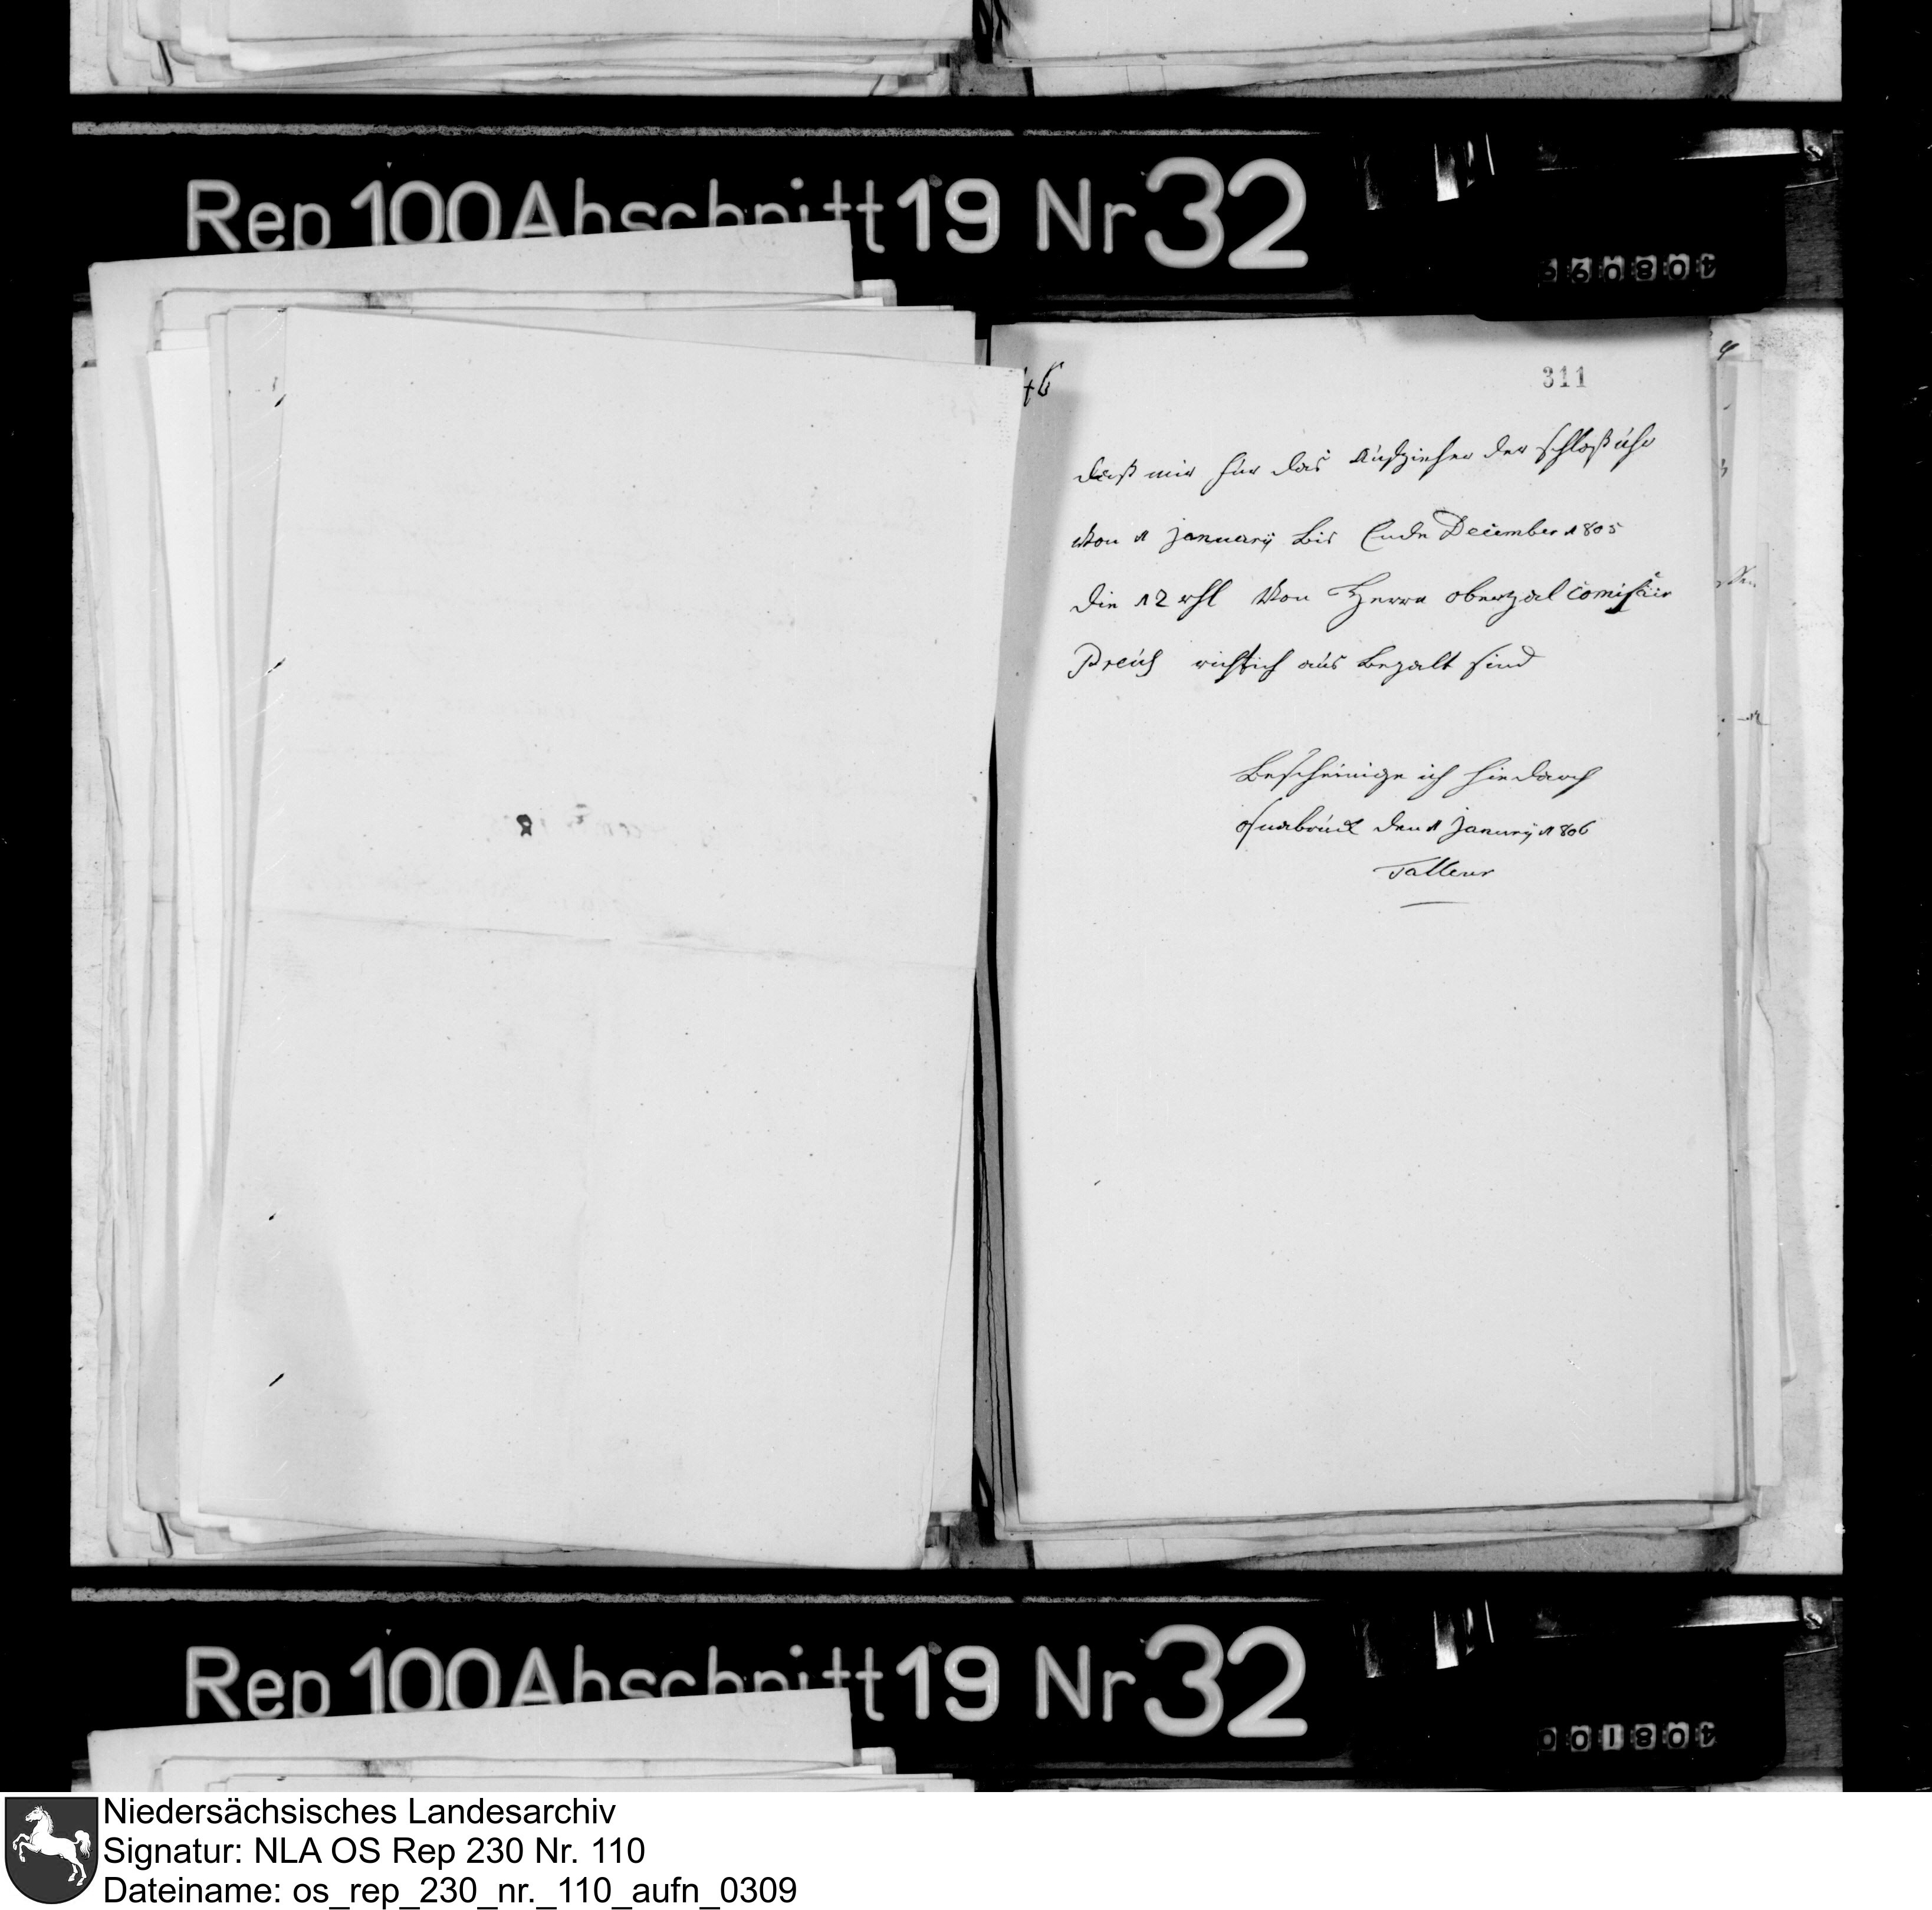 Rep 100 Abschnitt 19 Nr 32
46
311
daß mir für das Aufziehen der schloßuhr
Von 1 januarÿ bis Ende December 1805
die 12 rhl Von Herrn oberzalcomisäir
Preüs richtich aus bezalt sind
bescheinige ich hiedurch
osnabrück den 1 janurÿ 1806
Talleur
Rep 100 Abschnitt 19 Nr 32
Niedersächsisches Landesarchiv
Signatur: NLA OS Rep 230 Nr. 110
Dateiname: os_rep_230_nr._110_aufn_0309